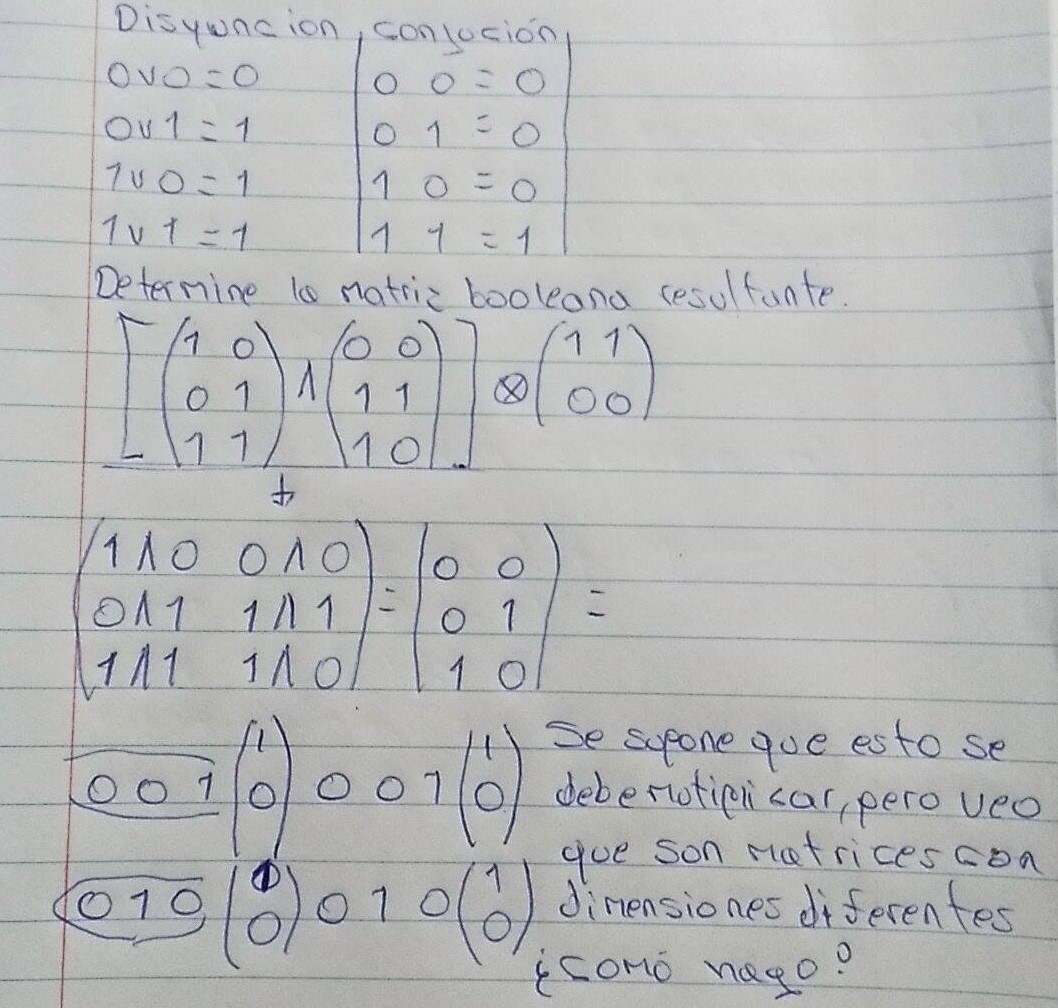 Disyuncion, conjución,
0v0=0 | 0 0 = 0 |
0v1=1 | 0 1 = 0 |
1v0=1 | 1 0 = 0 |
1v1=1 | 1 1 = 1 |
Determine la matriz booleana resultante.
[ (1 0) ∧ (0 0) ] ⊗ (1 1)
(0 1) (1 1) (0 0)
(1 1) (1 0)
(1∧0 0∧0) = (0 0) =
(0∧1 1∧1) (0 1)
(1∧1 1∧0) (1 0)
0 0 1 (1 0) 0 0 1 (1 0)
0 1 0 (1 0) 0 1 0 (1 0)
Se supone que esto se
debe multiplicar, pero veo
que son matrices con
dimensiones diferentes
¿como hago?